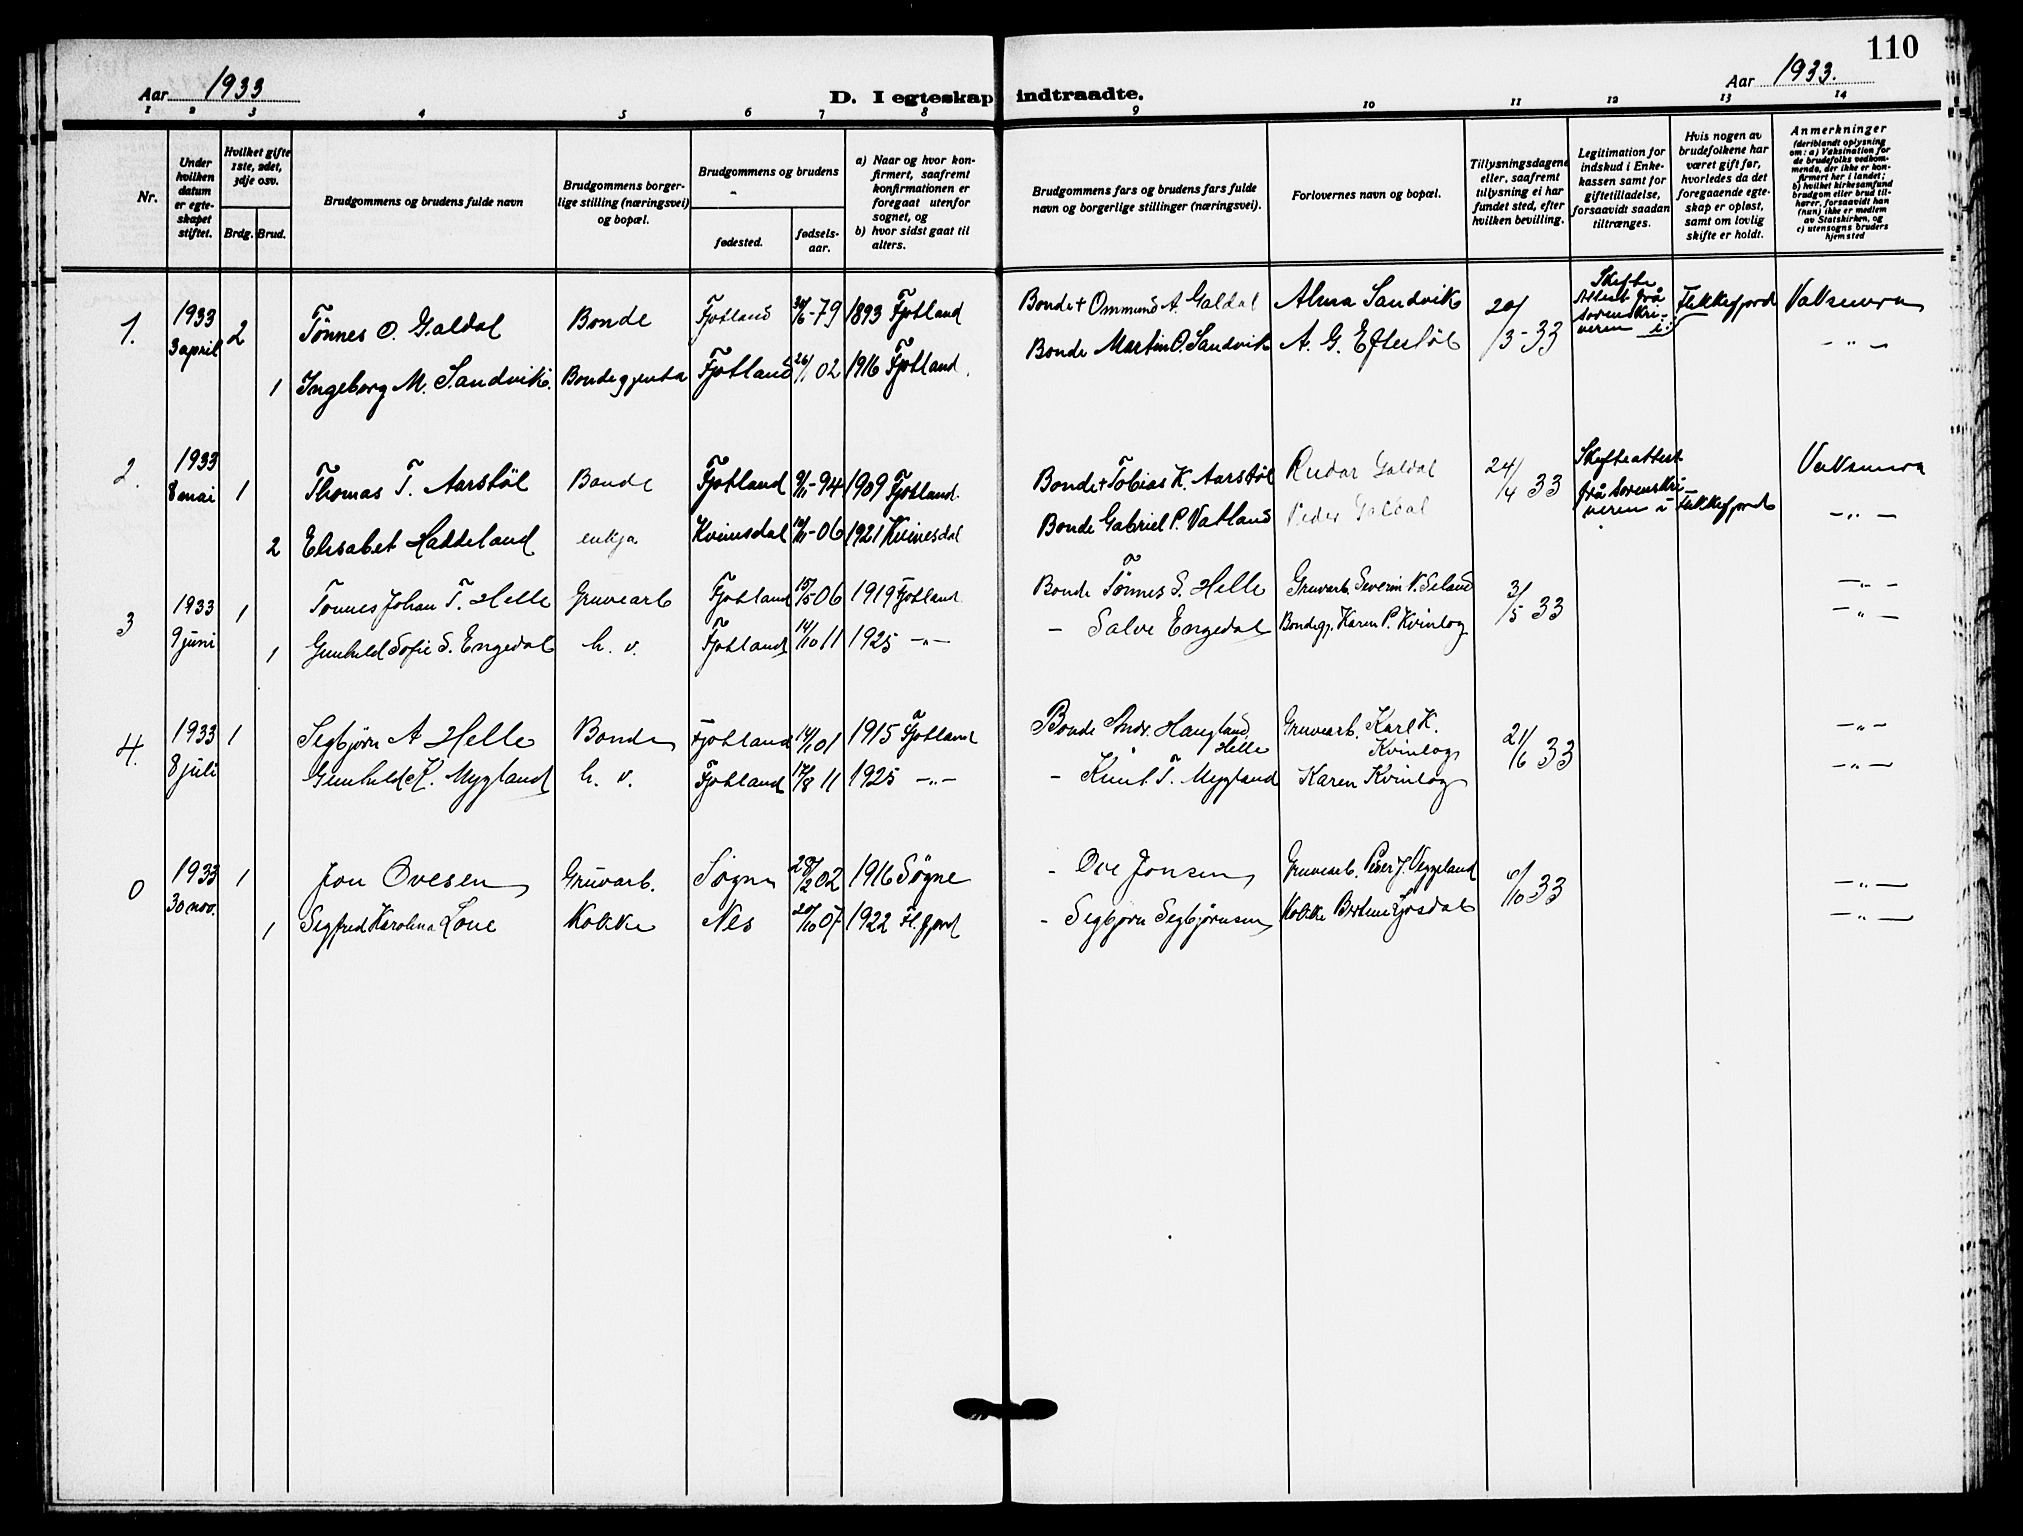 110
Aar 1933
D. I egteskap indtraadte.
Aar 1933.
1 2 3 4 5 6 7 8 9 10 11 12 13 14
Nr.
Under hvilken datum er egteskapet stiftet.
Hvilket gifte 1ste, 2det, 3dje osv.
Brdg. Brud.
Brudgommens og brudens fulde navn
Brudgommens borgerlige stilling (næringsvei) og bopæl.
Brudgommens og brudens
fødested.
fødselsaar.
a) Naar og hvor konfirmert, saafremt konfirmationen er foregaat utenfor sognet, og
b) hvor sidst gaat til alters.
Brudgommens fars og brudens fars fulde navn og borgerlige stillinger (næringsvei).
Forlovernes navn og bopæl.
Tillysningsdagene eller, saafremt tillysning ei har fundet sted, efter hvilken bevilling.
Legitimation for indskud i Enkekassen samt for giftetilladelse, forsaavidt saadan tiltrænges.
Hvis nogen av brudefolkene har været gift før, hvorledes da det foregaaende egteskap er opløst, samt om lovlig skifte er holdt.
Anmerkninger (deriblandt oplysning om: a) Vaksination for de brudefolks vedkommende, der ikke er konfirmert her i landet; b) hvilket kirkesamfund brudgom eller brud tilhører, forsaavidt han (hun) ikke er medlem av Statskirken, og c) utensogns bruders hjemsted
1. 1933 3 april 2 Tønnes O. Galdal Bonde Fjotland 30/6-79 1893 Fjotland Bonde + Ommund A. Galdal Alma Sandvik 20/3-33 Skifte Attest frå sorenskriveren i Flekkefjord Vaksinera
1 Ingeborg M. Sandvik. Bondegjenta Fjotland 26/1 02 1916 Fjotland. Bonde Martin O. Sandvik A. G. Eftestøl -"-
2. 1933 8 mai 1 Thomas T. Aarstøl Bonde Fjotland 9/11-94 1909 Fjotland. Bonde + Tobias K. Aarstøl Reidar Galdal 24/4 33 Skifteattest frå sorenskriveren i Flekkefjord Vaksinera
2 Elisabet Haddeland enkja Kvinesdal 10/11-06 1921 Kvinesdal Bonde Gabriel P. Vatland Peder Galdal -"-
3 1933 9 juni 1 Tønnes Johan T. Helle Gruvearb Fjotland 15/5 06 1919 Fjotland Bonde Tønnes S. Helle Gruvarb. Severin N. Seland 3/5 33 -"-
1 Gunhild Sofie S. Engedal h. v. Fjotland 14/10 11 1925 -"- - Salve Engedal Bondegj. Karen P. Kvinlog -"-
4. 1933 8 juli 1 Segbjørn A Helle Bonde Fjotland 14/1 01 1915 Fjotland Bonde Andr. Haugland Helle Gruvearb. Karl K. Kvinlog 21/6 33 -"-
Gunhild K. Mygland h. v. Fjotland 17/8 11 1925 -"- - Knut T. Mygland Karen Kvinlog -"-
0 1933 30 nov. 1 Jon Ovesen Gruvarb. Søgne 28/2 02 1916 Søgne - Ove Jonsen Gruvearb. Peder J. Veggeland 6/10 33 -"-
1 Segfred Karolina Lone Kokke Nes 20/10 07 1922 Fl.fjord - Segbjørn Segbjørnsen Kokke Bertine Lyosdal -"-